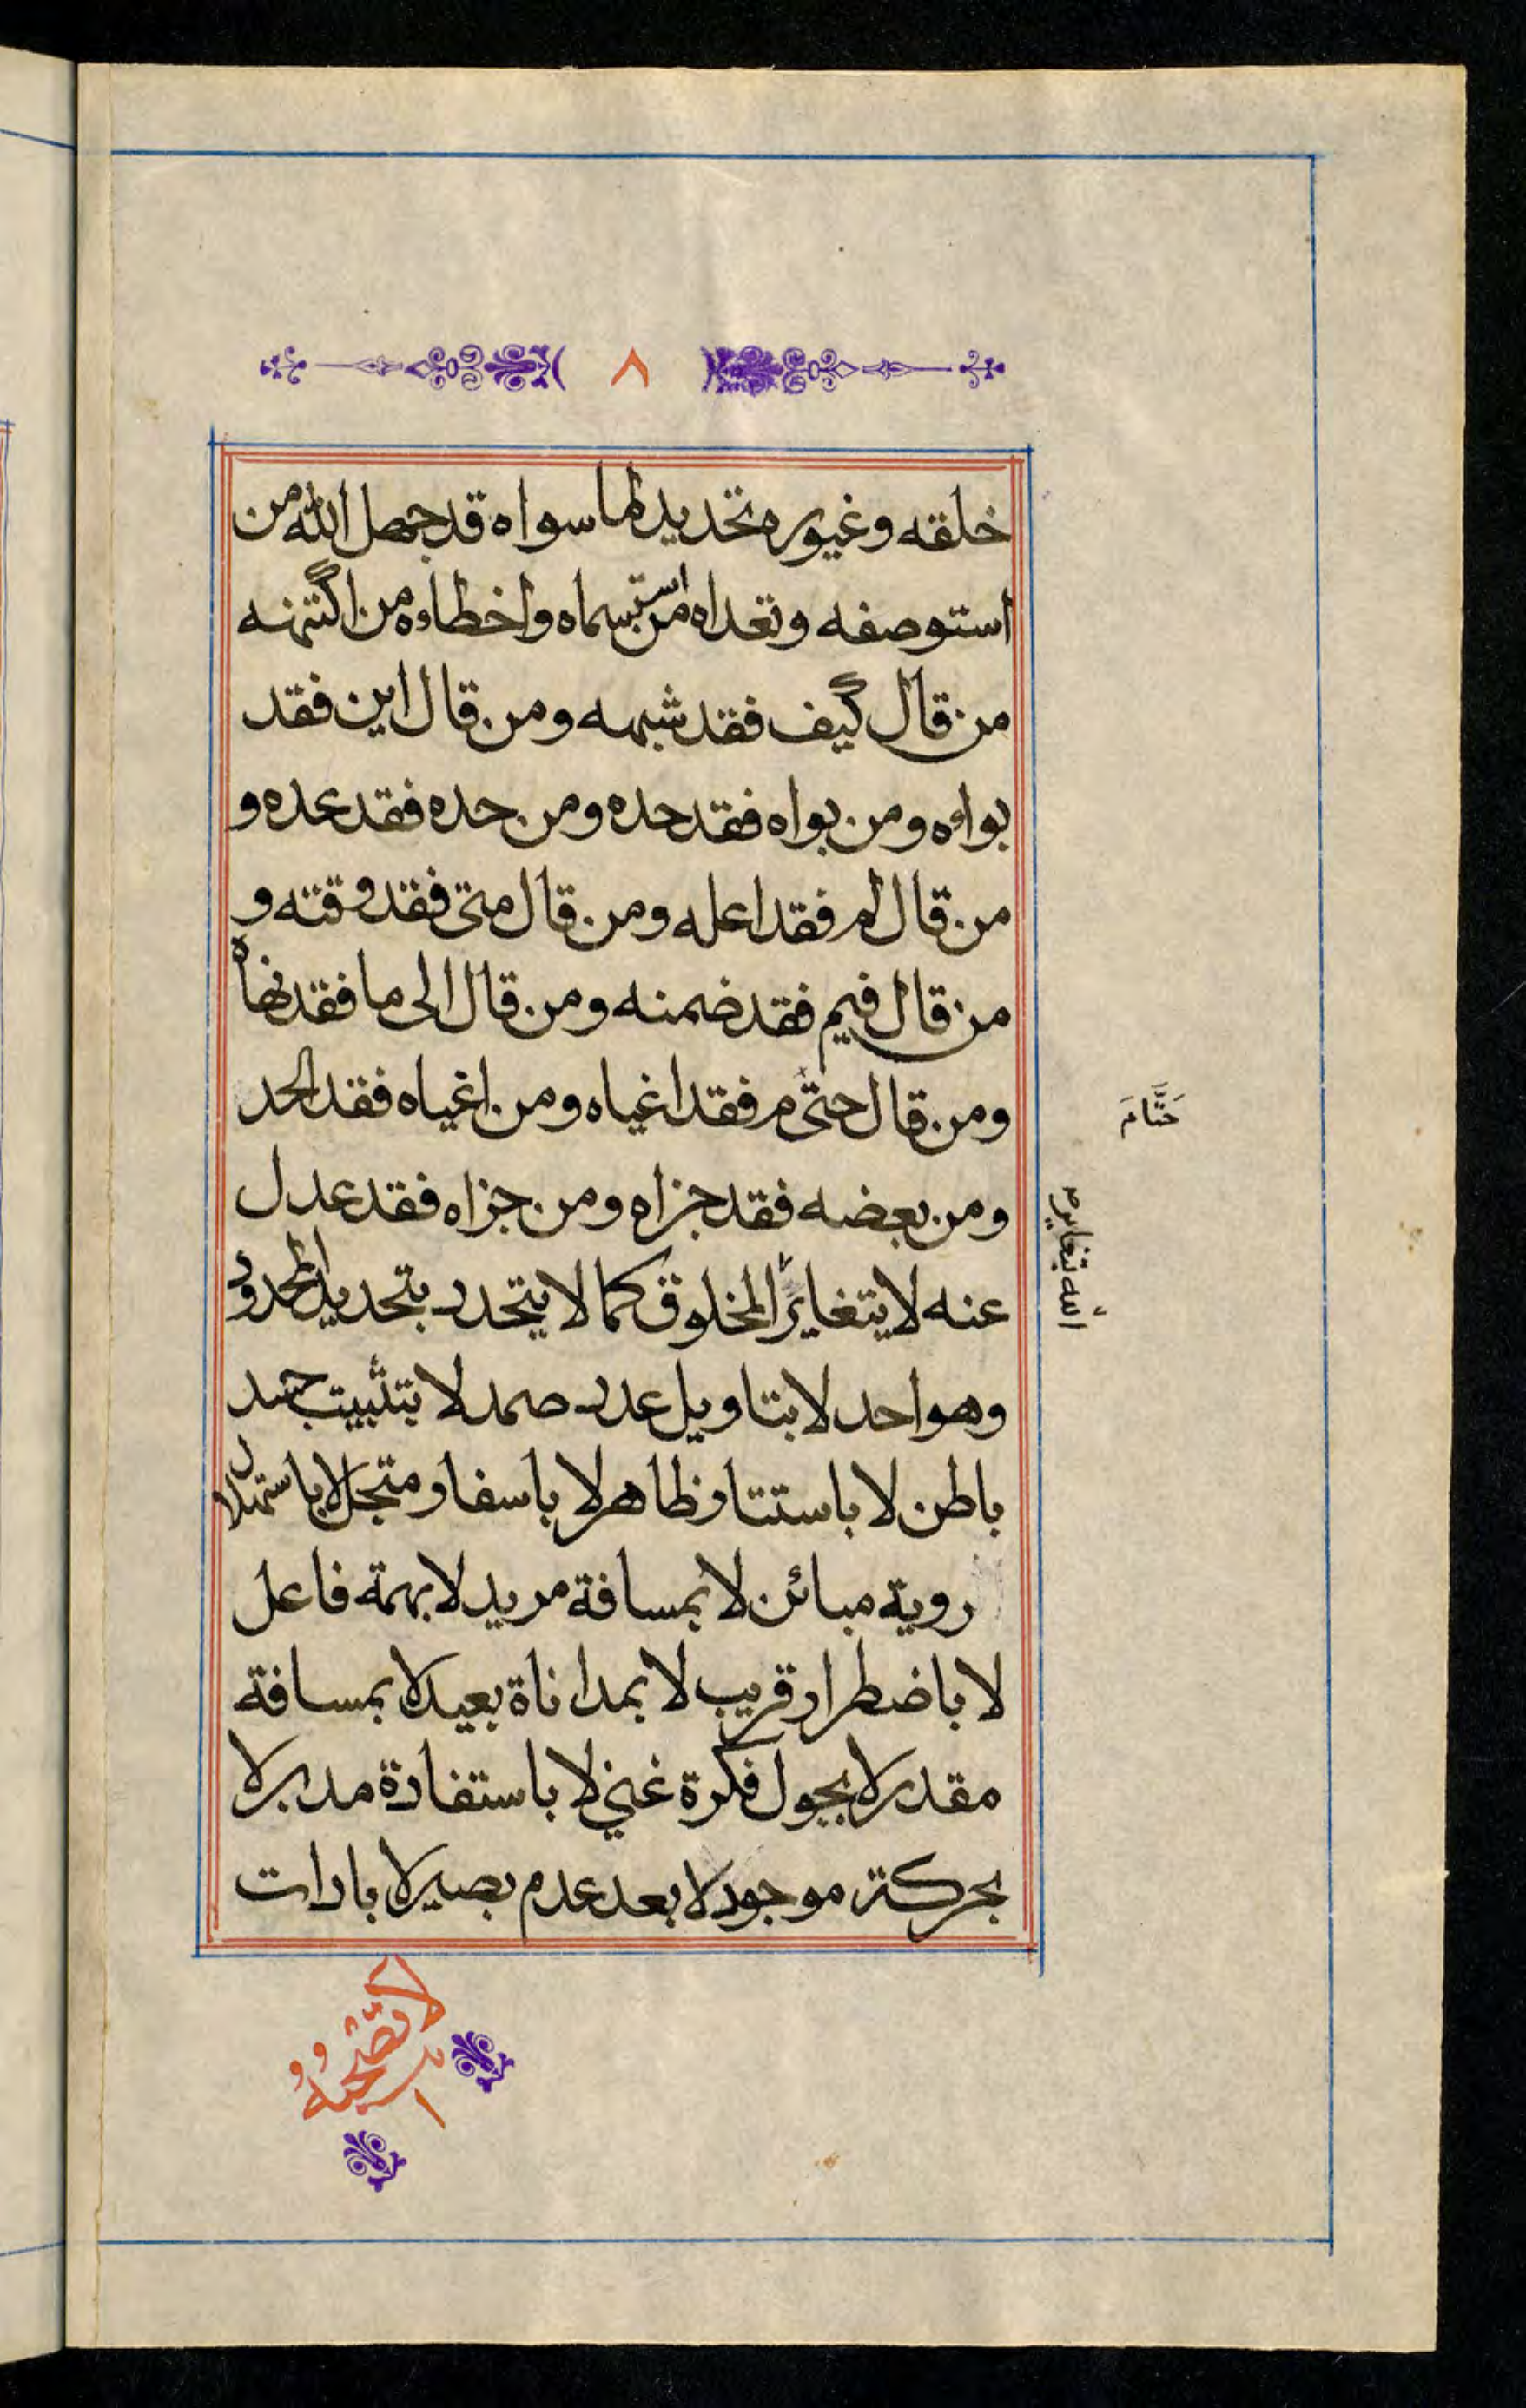 ٨
خلقه وغيوره تحديد لما سواه قد جهل الله من
استوصفه وتعداه من استبسماه واخطاوه من اكتنهه
من قال كيف فقد شبهه ومن قال اين فقد
بواوه ومن بواه فقد حده ومن حده فقد عده و
من قال لم فقد اعله ومن قال متى فقد وقته و
من قال فيم فقد ضمنه ومن قال الى ما فقد نهاه
ومن قال حتى م فقد اغياه ومن اغياه فقد الحد
حَتَّامَ
ومن بعضه فقد جزاه ومن جزاه فقد عدل
عنه لا يتغاير المخلوق كما لا يتحدد بتحديد المحدود
الله بتغاير
وهو احد لا بتاويل عدد صمد لا بتثبيت جسد
باطن لا باستتار ظاهر لا باسفار متجل لا باستهلال
روية مبائن لا بمسافة مريد لا بهمة فاعل
لا باضطرار قريب لا بمداناة بعيد لا بمسافة
مقدر لا بجول فكرة غني لا باستفادة مدبر لا
بحركة موجود لا بعد عدم بصير لا بادات
لا تصحبه